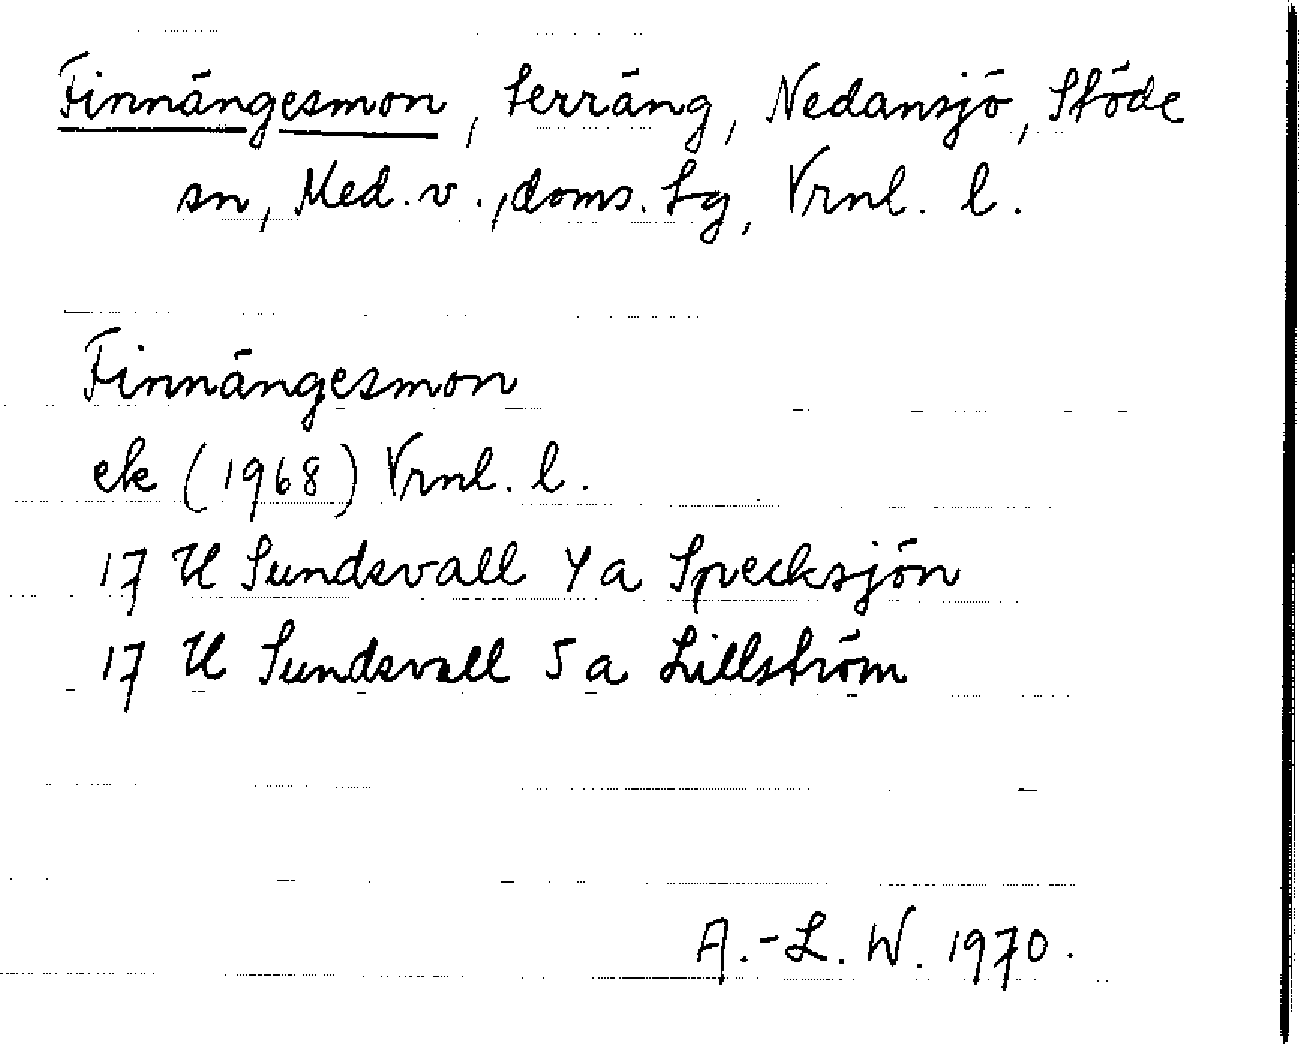 Finnängesmon, terräng, Nedansjö, Stöde
sn, Med. v., doms. Lg, Vrnl. l.
Finnängesmon
ek (1968) Vrnl. l.
17 H Sundsvall 4 a Specksjön
17 H Sundsvall 5 a Lillström
A.-L. W. 1970.